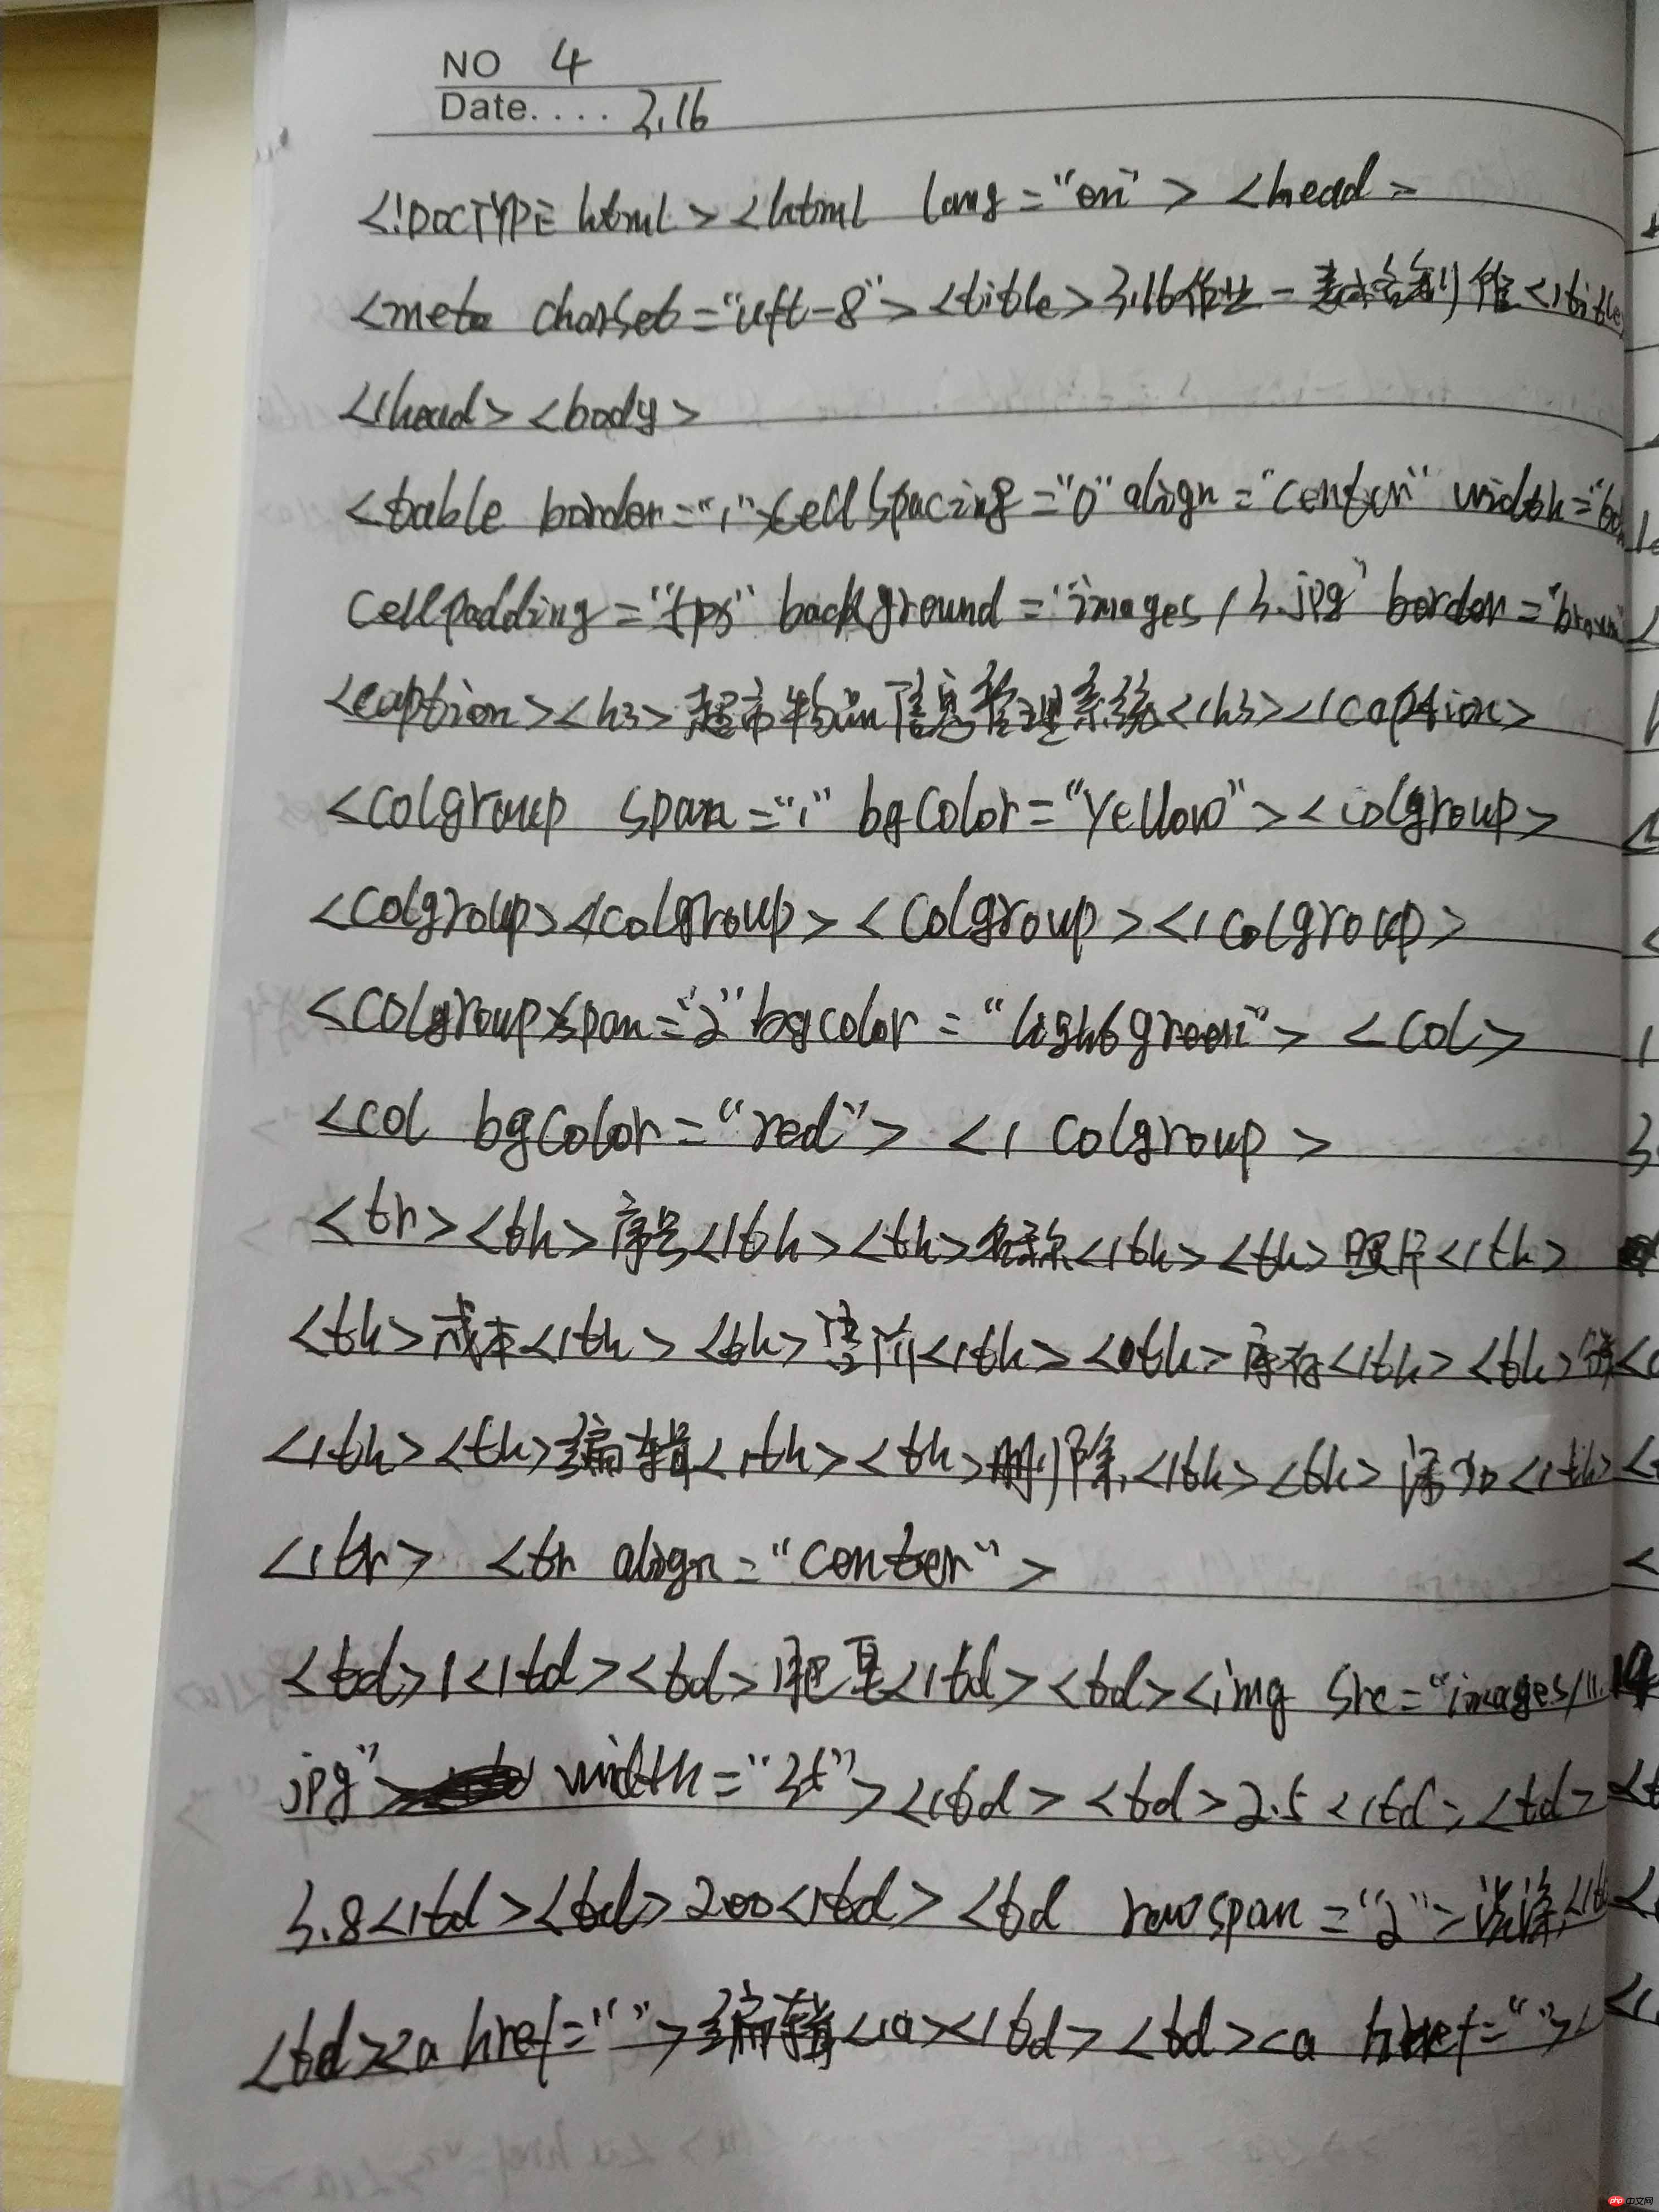 NO 4
Date.... 3.16
<!DOCTYPE html><html lang="en"><head>
<meta charset="uft-8"><title>3.16作业-表格制作</title>
</head><body>
<table border="1" cellspacing="0" align="center" width=
cellpadding= background="images/3.jpg" border="brown"
<caption><h3>超市物品信息管理系统</h3></caption>
<colgroup span="1" bgcolor="yellow"><colgroup>
<colgroup></colgroup><colgroup></colgroup>
<colgroup span="2" bgcolor="lightgreen"><col>
<col bgcolor="red"></colgroup>
<tr><th>序号</th><th>名称</th><th>照片</th>
<th>成本</th><th>售价</th><th>库存</th><th>
</th><th>编辑</th><th>删除</th><th>添加</th>
</tr><tr align="center">
<td>1</td><td>肥皂</td><td><img src="images/11.
jpg" width= ></td><td>2.5</td><td>
3.8</td><td>200</td><td rowspan="2">洗涤
<td><a href="">编辑</a></td><td><a href="">
php 中文网